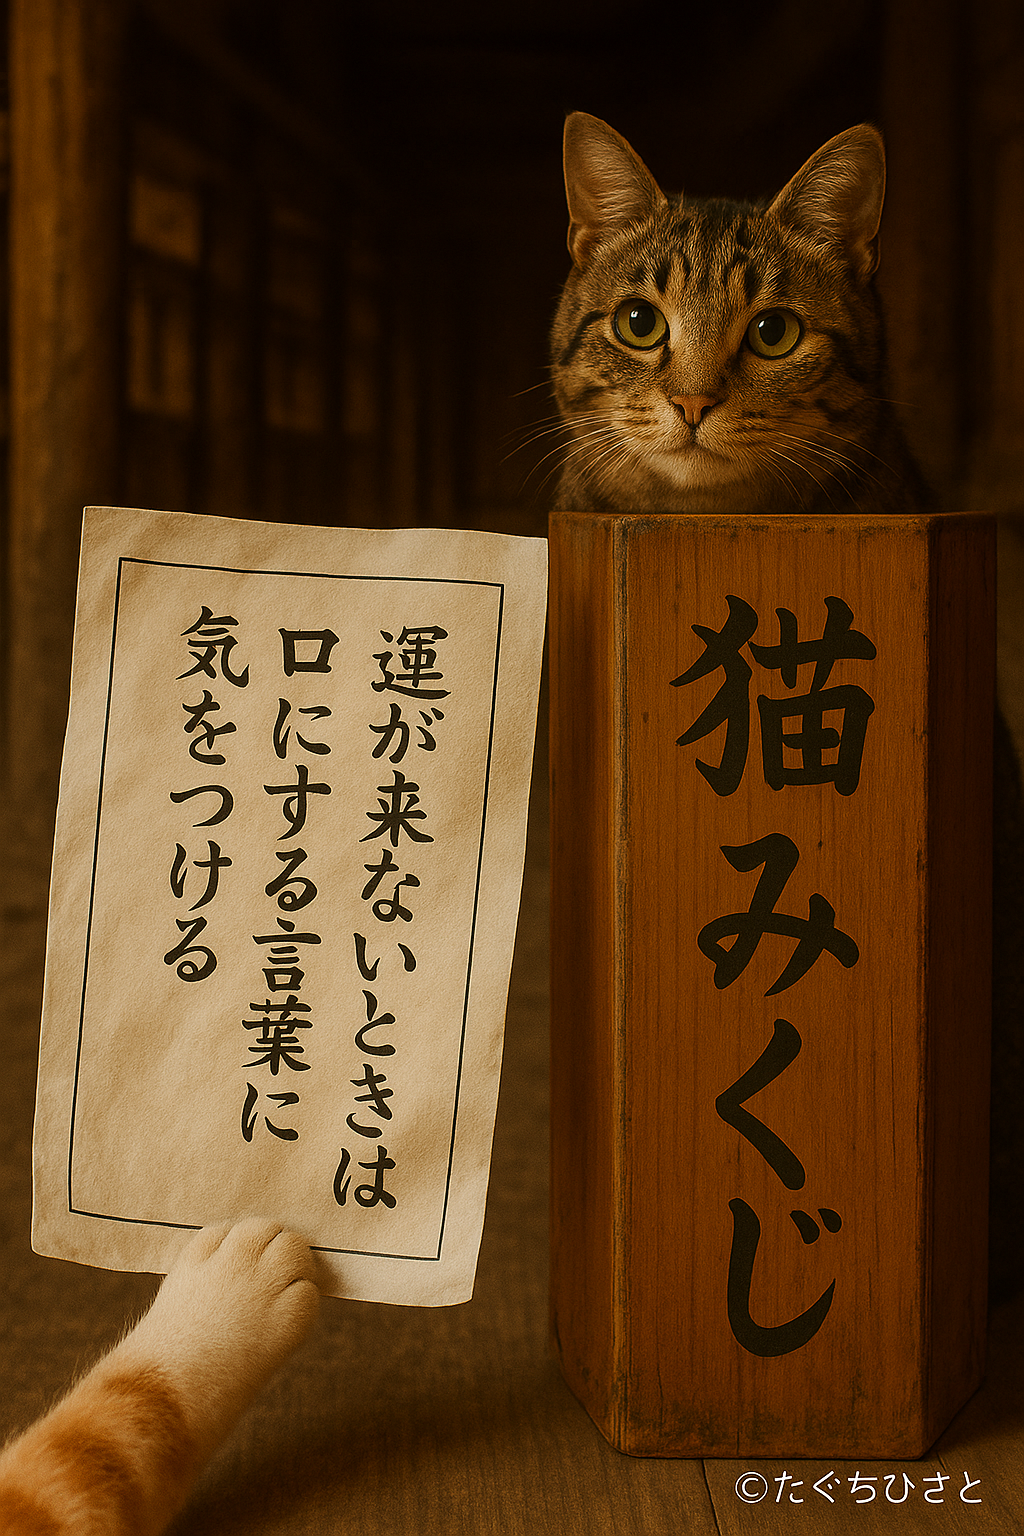 運が来ないときは
口にする言葉に
気をつける
猫みくじ
©たぐちひさと